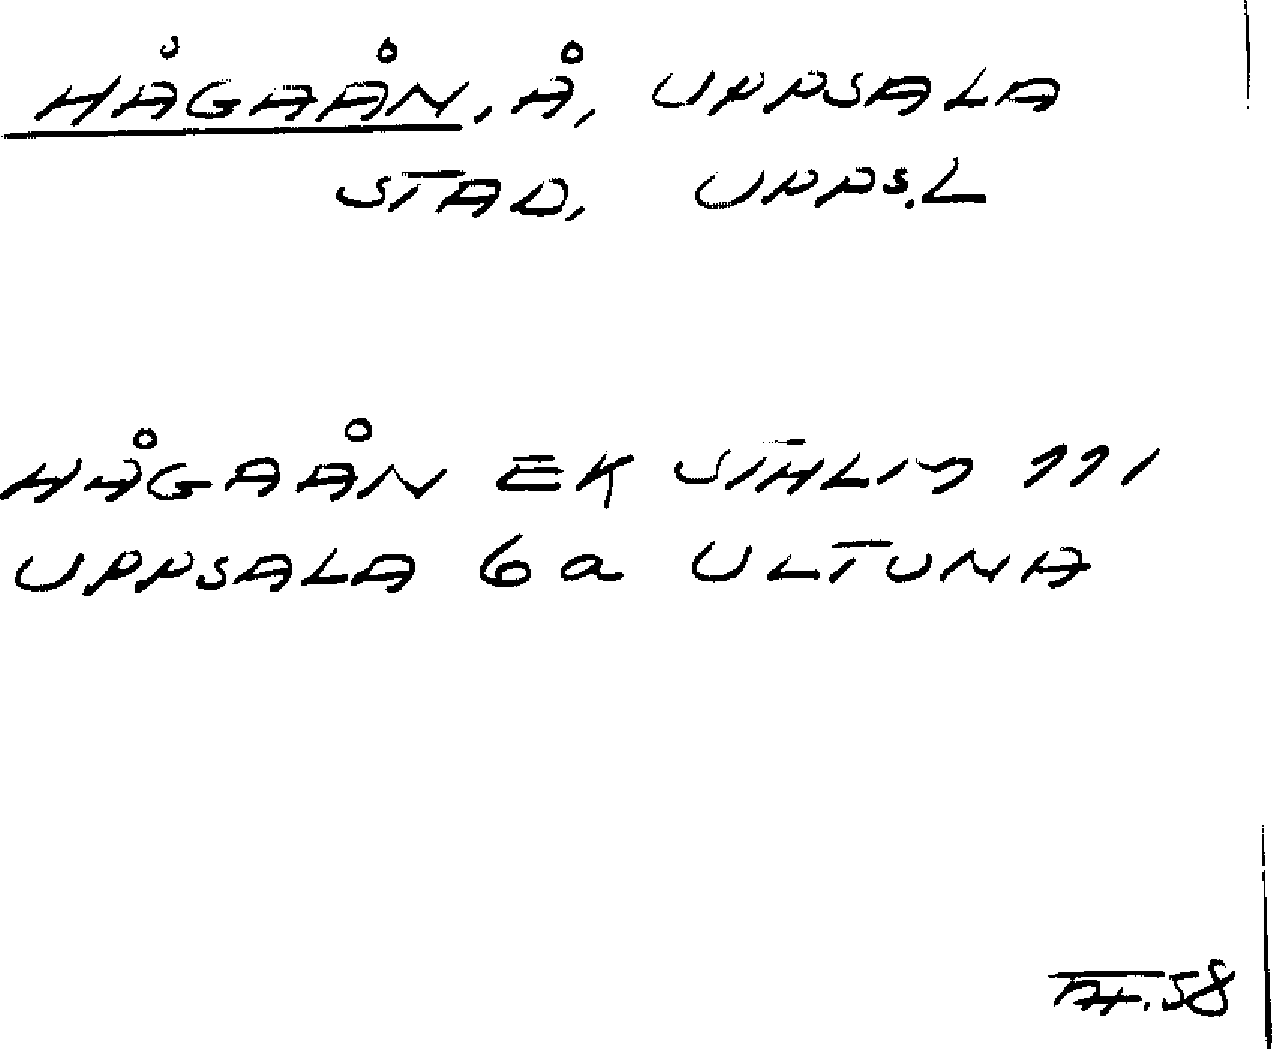 HÅGAÅN, Å, UPPSALA
STAD, UPPS.L
HÅGAÅN EK
UPPSALA 6a ULTUNA
58